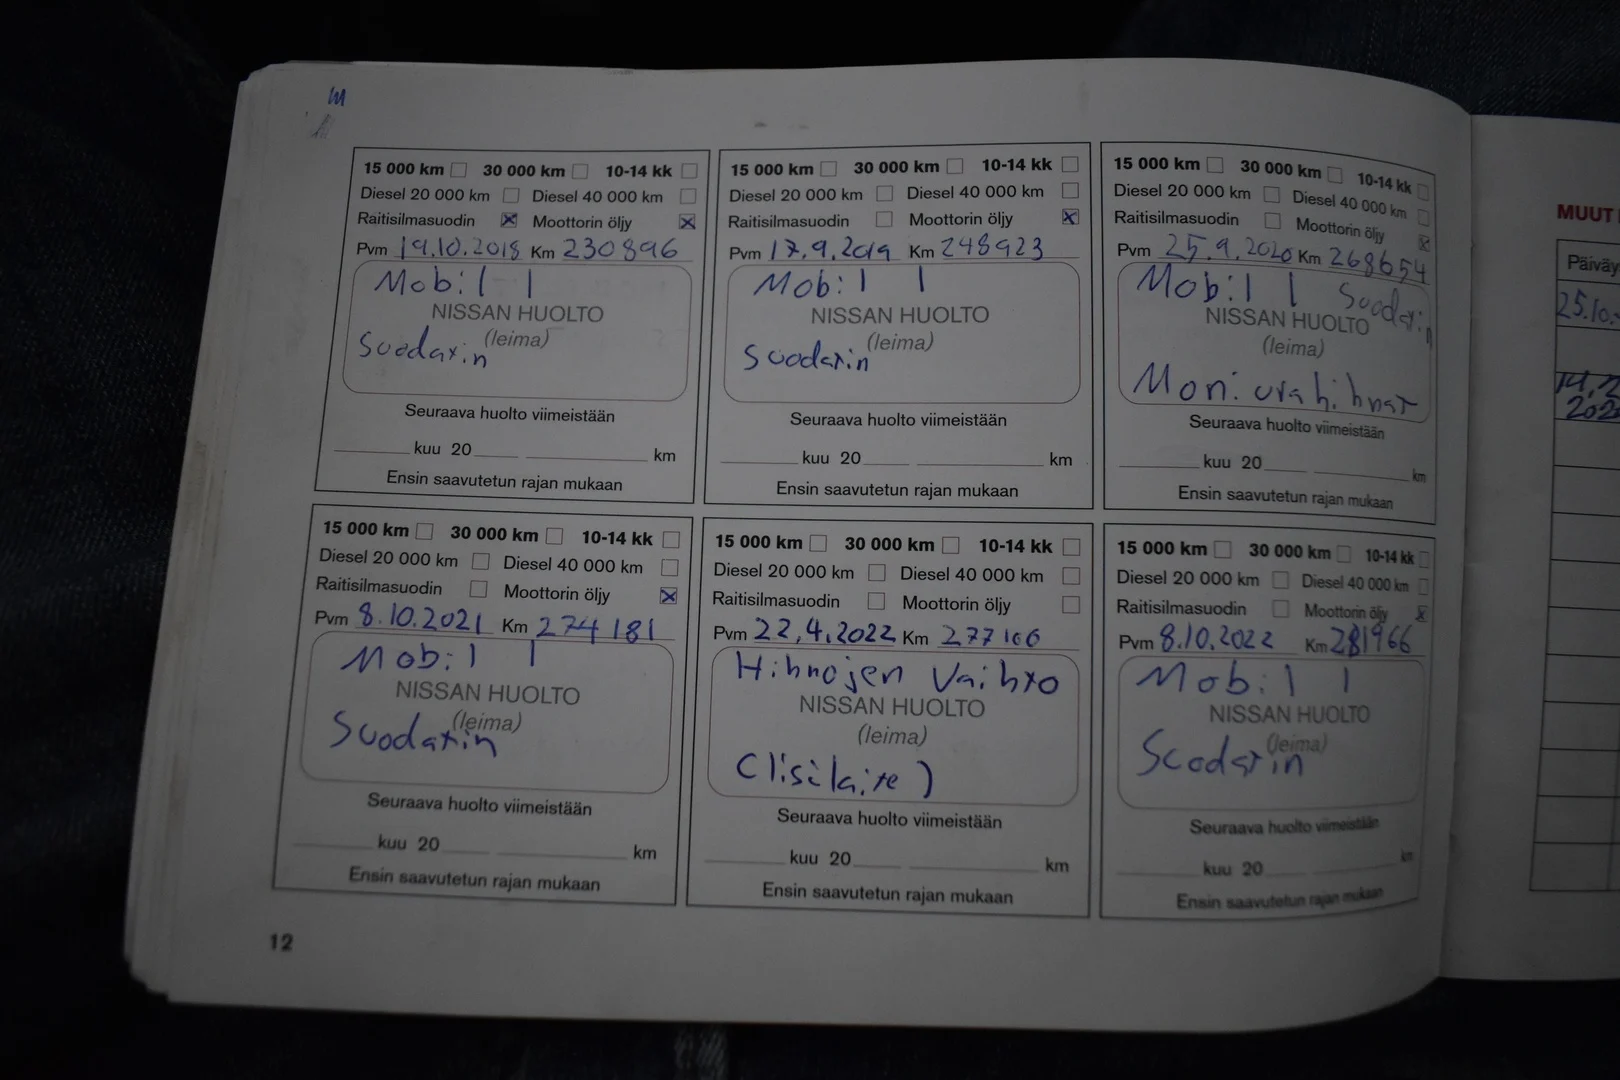 15 000 km 30 000 km 10-14 kk
Diesel 20 000 km Diesel 40 000 km
Raitisilmasuodin Moottorin öljy
Pvm 19.10.2018 Km 230896
Mobil 1
NISSAN HUOLTO
(leima)
Suodatin
Seuraava huolto viimeistään
kuu 20 km
Ensin saavutetun rajan mukaan
15 000 km 30 000 km 10-14 kk
Diesel 20 000 km Diesel 40 000 km
Raitisilmasuodin Moottorin öljy
Pvm 17.9.2019 Km 248923
Mobil 1
NISSAN HUOLTO
(leima)
Suodatin
Seuraava huolto viimeistään
kuu 20 km
Ensin saavutetun rajan mukaan
15 000 km 30 000 km 10-14 kk
Diesel 20 000 km Diesel 40 000 km
Raitisilmasuodin Moottorin öljy
Pvm 25.9.2020 Km 268654
Mobil 1 Suodatin
NISSAN HUOLTO
(leima)
Moniurahihnat
Seuraava huolto viimeistään
kuu 20 km
Ensin saavutetun rajan mukaan
15 000 km 30 000 km 10-14 kk
Diesel 20 000 km Diesel 40 000 km
Raitisilmasuodin Moottorin öljy
Pvm 8.10.2021 Km 274181
Mobil 1
NISSAN HUOLTO
(leima)
Suodatin
Seuraava huolto viimeistään
kuu 20 km
Ensin saavutetun rajan mukaan
15 000 km 30 000 km 10-14 kk
Diesel 20 000 km Diesel 40 000 km
Raitisilmasuodin Moottorin öljy
Pvm 22.4.2022 Km 277166
Hihnojen Vaihto
NISSAN HUOLTO
(leima)
(lisälaite)
Seuraava huolto viimeistään
kuu 20 km
Ensin saavutetun rajan mukaan
15 000 km 30 000 km 10-14 kk
Diesel 20 000 km Diesel 40 000 km
Raitisilmasuodin Moottorin öljy
Pvm 8.10.2022 Km 281966
Mobil 1
NISSAN HUOLTO
(leima)
Suodatin
Seuraava huolto viimeistään
kuu 20 km
Ensin saavutetun rajan mukaan
12
MUUT
Päiväy
25.10.